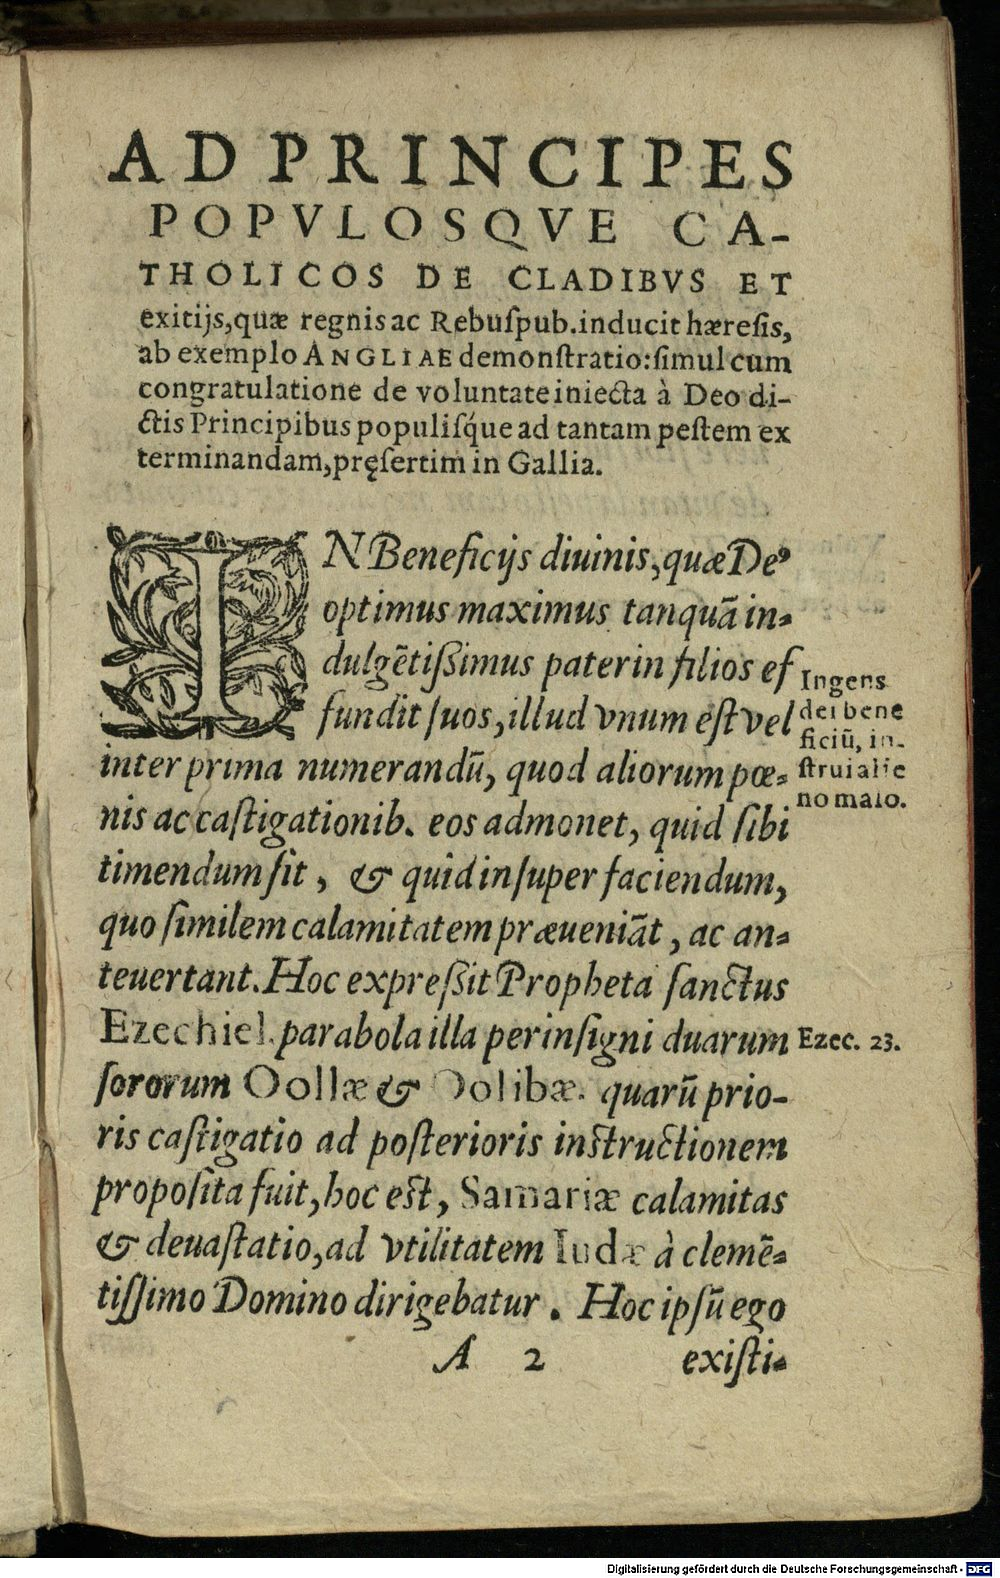 AD PRINCIPES
POPVLOSQVE CA-
THOLICOS DE CLADIBVS ET
exitijs, quæ regnis ac Rebuſpub. inducit hæreſis,
ab exemplo ANGLIAE demonſtratio: ſimul cum
congratulatione de voluntate iniecta à Deo di-
ctis Principibus populiſq́ue ad tantam peſtem ex
terminandam, pręſertim in Gallia.
IN Beneficijs diuinis, quæ De⁹
optimus maximus tanquā in-
dulgētiſſimus pater in filios ef
fundit ſuos, illud vnum eſt vel
inter prima numerandū, quod aliorum pœ-
nis ac caſtigationib. eos admonet, quid ſibi
timendum ſit, & quid inſuper faciendum,
quo ſimilem calamitatem præueniāt, ac an-
teuertant. Hoc expreſſit Propheta ſanctus
Ezechiel. parabola illa perinſigni duarum
ſororum Oollæ & Oolibæ. quarū prio-
ris caſtigatio ad poſterioris inſtructionem
propoſita fuit, hoc eſt, Samariæ calamitas
& deuaſtatio, ad vtilitatem Iudæ à clemē-
tiſſimo Domino dirigebatur. Hoc ipſū ego
A 2 exiſti-
Ingens
dei bene
ficiū, in-
ſtrui alie
no malo.
Ezec. 23.
Digitalisierung gefördert durch die Deutsche Forschungsgemeinschaft - DFG